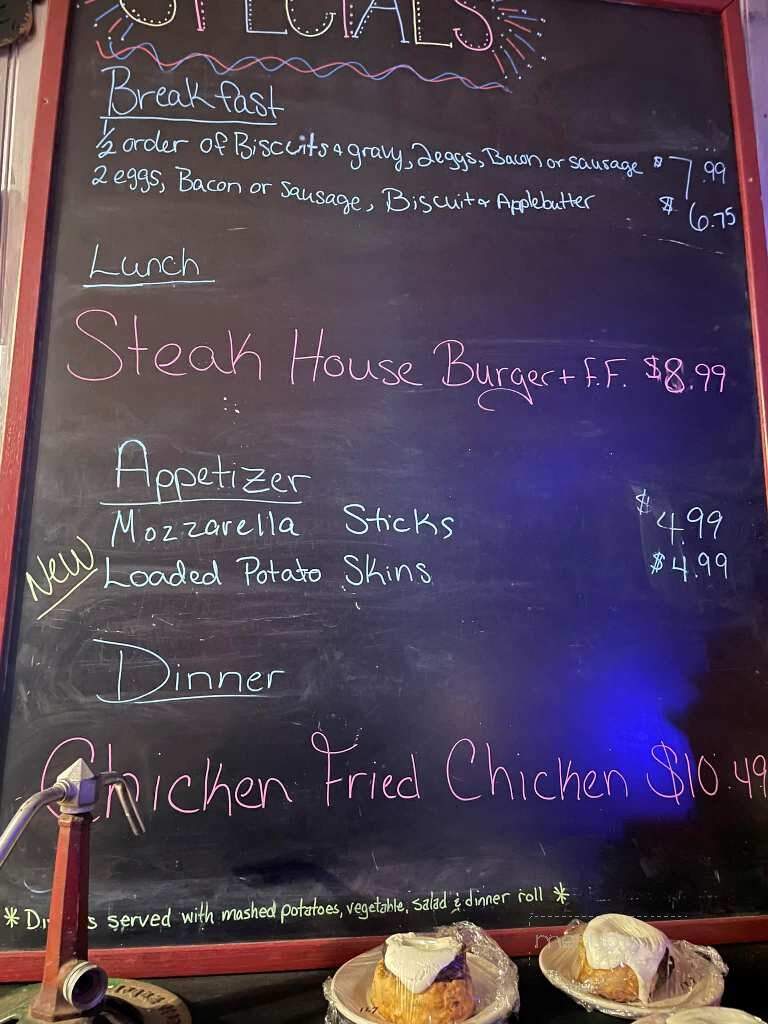 SPECIALS
Breakfast
1/2 order of Biscuits & gravy, 2 eggs, Bacon or sausage $7.99
2 eggs, Bacon or sausage, Biscuit & Applebutter $6.75
Lunch
Steak House Burger + F.F. $8.99
Appetizer
Mozzarella Sticks $4.99
New Loaded Potato Skins $4.99
Dinner
Chicken Fried Chicken $10.49
* served with mashed potatoes, vegetable, salad & dinner roll *